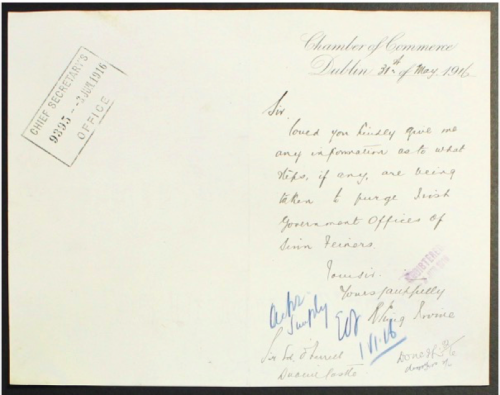 CHIEF SECRETARY'S
9395 - 3 JUN 1916
OFFICE
Chamber of Commerce
Dublin 31st of May 1916
Sir,
Could you kindly give me
any information as to what
steps, if any, are being
taken to purge Irish
Government Offices of
Sinn Feiners
I am sir
Yours faithfully
King Irvine
Ackn
simply
1 VI. 16
Sir Ed O'Farrell